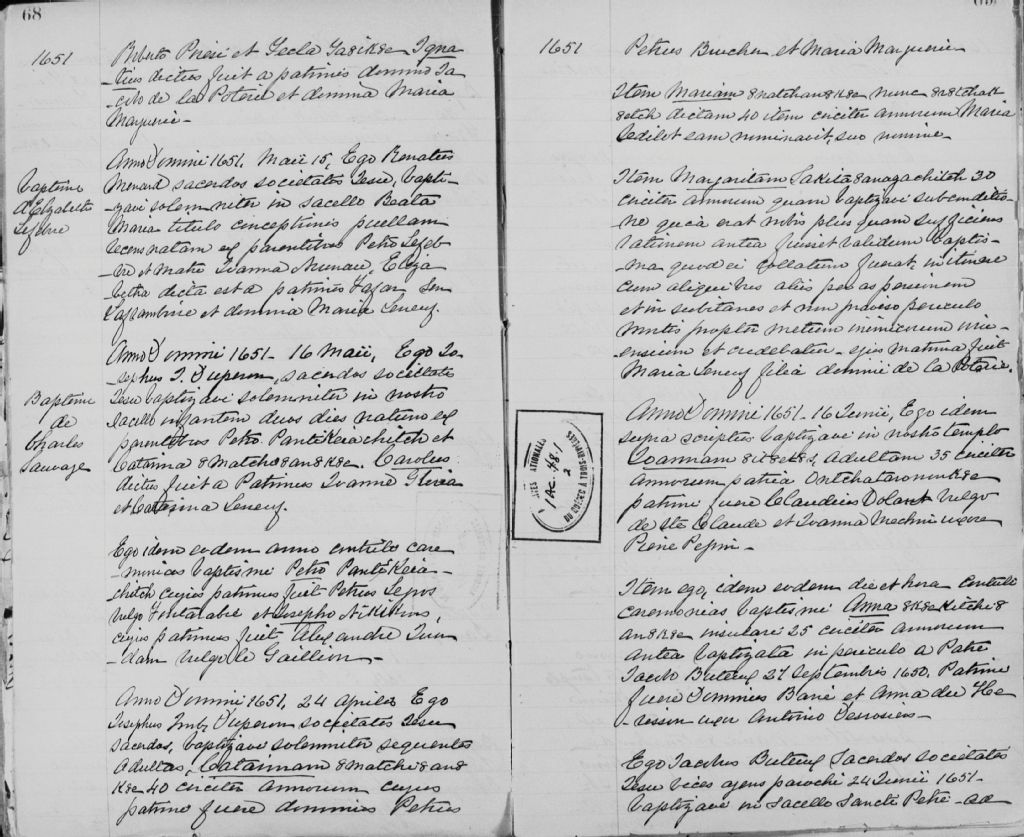 68
1651
Roberto Priesé et Tecla Ignatius
-tius dictus fuit a patrinis domino Ja
-cobo de la Poterie et domina Maria
Marguerie -
Anno Domini 1651. Maii 15, Ego Renatus
Menard sacerdos societatis Jesu, bapti-
-zavi solemniter in sacello Beata
Maria titulo conceptionis puellam
recens natam ex parentibus Petro Lefeb
-vre et matre Joanna Auneau, Eliza
-betha dicta est a patrinis
et domina Maria Leneuf.
Baptême
d'Elizabeth
Lefebvre
Anno Domini 1651 - 16 Maii, Ego Jo
-sephus I. Duperon, sacerdos societatis
Jesu baptizavi solemniter in nostro
sacello infantem duos dies natum ex
parentibus Petro Pantikeiachitch et
Catarina 8matche8an8k8e. Carolus
dictus fuit a Patrinis Joanne
et Catarina Leneuf.
Baptême
de
Charles
Sauvage
Ego idem eodem anno contuli cere
-monias baptismi Petro Pantikeia-
-chitch cujus patrinus fuit Petrus
vulgo Fontarabie et Josepho
cujus patrinus fuit Alexandre
-dam vulgo le Gaillion -
Anno Domini 1651, 24 Aprilis Ego
Josephus Imb. Duperon societatis Jesu
sacerdos, baptizavi solemniter sequentes
adultas, Catarinam 8matche8an8
k8e 40 circiter annorum cujus
patrini fuere dominus Petrus
1651
Petrus Boucher et Maria Marguerie
Item Mariam nunc
dictam 40 item circiter annorum Maria
Sedilot eam nominavit, suo nomine.
Item Margaritam 30
circiter annorum quam baptizavi sub conditio-
-ne quia erat nobis plus quam sufficiens
rationem antea fuisse validum baptis-
-ma quod ei collatum fuerat, in itinere
cum aliquibus aliis per aspersionem
et in subitaneo et non praeviso periculo
mortis propter metum inimicorum
et credebatur - ejus matrina fuit
Maria Leneuf filia domini de la Poterie.
Anno Domini 1651 - 16 Junii, Ego idem
supra scriptus baptizavi in nostro templo
Joannam adultam 35 circiter
annorum patria Ontchataronunk8e
patrini fuere Claudius Volant vulgo
de Ste Claude et Joanna Mechin uxore
Pierre Pepin -
Item ego, idem eodem die et hora contuli
ceremonias baptismi Anna 8k8ekitchi8
an8k8e insulari 25 circiter annorum
antea baptizata in periculo a Patre
Jacobo Buteux 27 Septembris 1650. Patrini
fuere Dominus Barré et Anna du He
-rosson uxor Antonio Desrosiers -
Ego Jacobus Buteux Sacerdos societatis
Jesu vices agens parochi 24 Junii 1651 -
baptizavi in Sacello Sancti Petri - ad
1 AC. 48.1
2